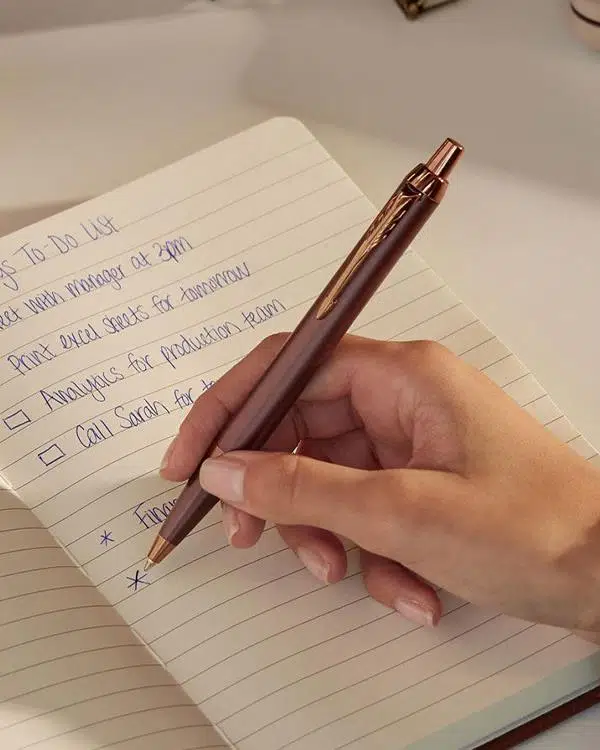 To-Do List
with manager at 3pm
Print excel sheets for tomorrow
Analytics for production team
Call Sarah for
*
*